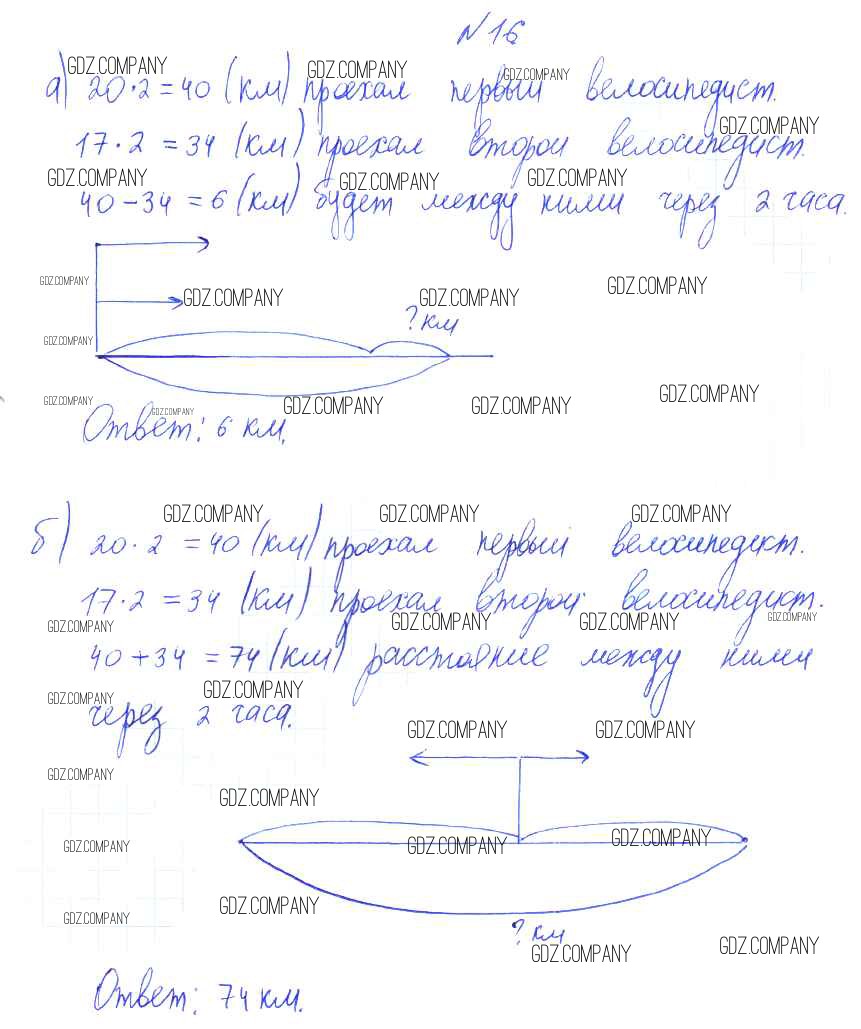 №16
GDZ.COMPANY GDZ.COMPANY GDZ.COMPANY
а) 20·2=40 (км) проехал первый велосипедист.
GDZ.COMPANY
17·2=34 (км) проехал второй велосипедист.
GDZ.COMPANY GDZ.COMPANY GDZ.COMPANY
40-34=6 (км) будет между ними через 2 часа.
GDZ.COMPANY GDZ.COMPANY GDZ.COMPANY GDZ.COMPANY
? км
GDZ.COMPANY
GDZ.COMPANY GDZ.COMPANY GDZ.COMPANY GDZ.COMPANY GDZ.COMPANY
Ответ: 6 км.
GDZ.COMPANY GDZ.COMPANY GDZ.COMPANY
б) 20·2=40 (км) проехал первый велосипедист.
17·2=34 (км) проехал второй велосипедист.
GDZ.COMPANY GDZ.COMPANY GDZ.COMPANY GDZ.COMPANY
40+34=74 (км) расстояние между ними
GDZ.COMPANY GDZ.COMPANY
через 2 часа.
GDZ.COMPANY GDZ.COMPANY
GDZ.COMPANY
GDZ.COMPANY
GDZ.COMPANY GDZ.COMPANY GDZ.COMPANY
GDZ.COMPANY GDZ.COMPANY
? км
GDZ.COMPANY GDZ.COMPANY
Ответ: 74 км.